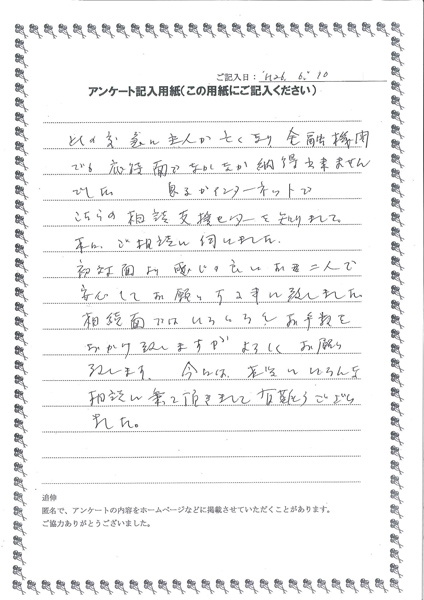 ご記入日：H26. 6. 10
アンケート記入用紙（この用紙にご記入ください）
主人が亡くなり 金融機関
でも 応待面でなかなか納得出来ません
でした インターネットで
こちらの 相談 支援センターを知りまして
ご相談に 伺いました.
初対面より 感じの良い お二人で
安心して お願いする事に致しました
相続面ではいろいろと お手数を
おかけ致しますが よろしく お願い
致します. 今日は、本当に いろんな
相談に乗って頂きまして 有難とうござい
ました。
追伸
匿名で、アンケートの内容をホームページなどに掲載させていただくことがあります。
ご協力ありがとうございました。